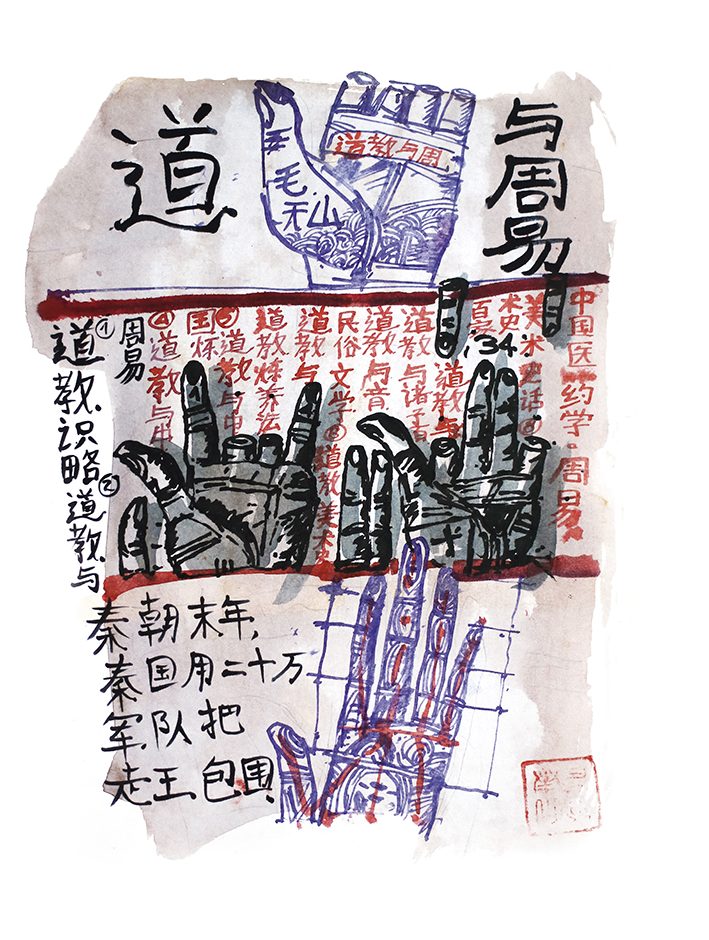 道
与周易
毛
无山
道教与周
中国医药学·周易
美术史话⑧
术史
34
道教与
道教与诸子
民俗文学⑥
道教美术
道教与
道教炼养法
⑤道教与中
国炼
④道教与中
周易
①道教识略②道教与
秦朝末年，
秦国用二十万
军队把
走王包围